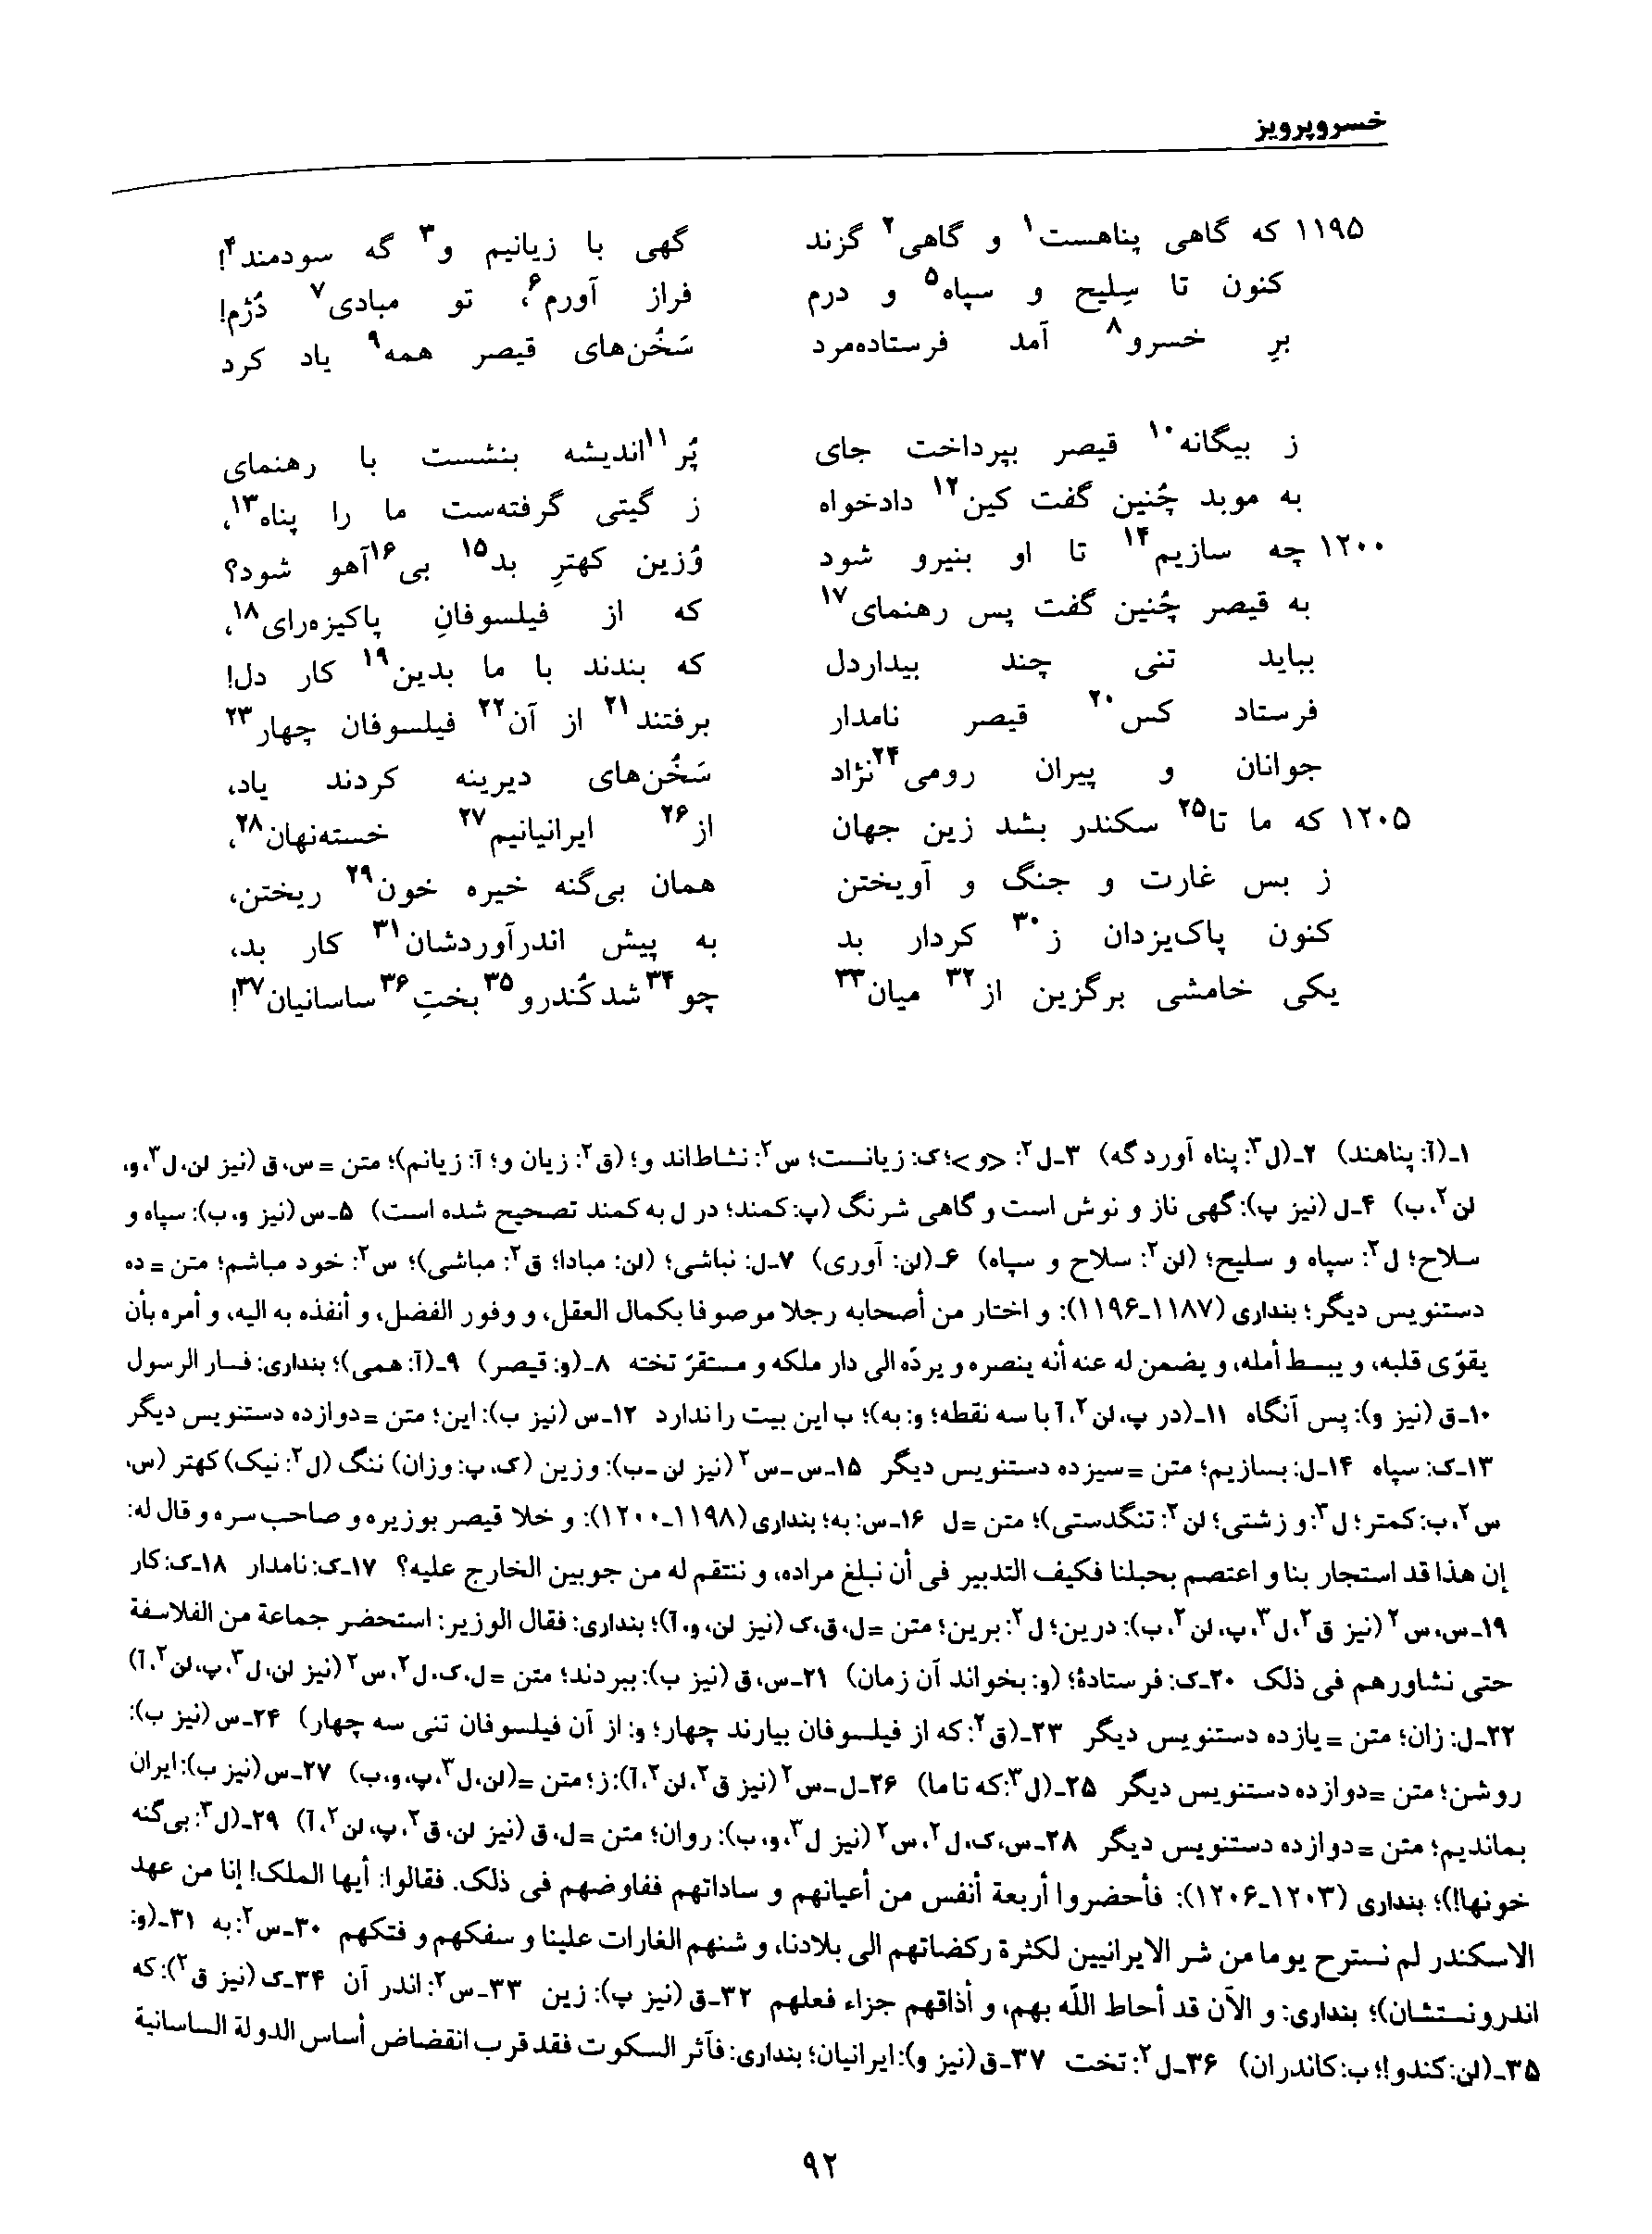 خسروپرویز
۱۱۹۵ که گاهی پناهست۱ و گاهی۲ گزند گهی با زیانیم و۳ گه سودمند۴!
کنون تا سِلیح و سپاه۵ و درم فراز آورم۶، تو مبادی۷ دُژم!
برِ خسرو۸ آمد فرستاده‌مرد سَخُن‌های قیصر همه۹ یاد کرد
ز بیگانه۱۰ قیصر بپرداخت جای پُر۱۱اندیشه بنشست با رهنمای
به موبد چُنین گفت کین۱۲ دادخواه ز گیتی گرفته‌ست ما را پناه۱۳،
۱۲۰۰ چه سازیم۱۴ تا او بنیرو شود وُزین کهترِ بد۱۵ بی۱۶آهو شود؟
به قیصر چُنین گفت پس رهنمای۱۷ که از فیلسوفانِ پاکیزه‌رای۱۸،
بباید تنی چند بیداردل که بندند با ما بدین۱۹ کار دل!
فرستاد کس۲۰ قیصر نامدار برفتند۲۱ از آن۲۲ فیلسوفان چهار۲۳
جوانان و پیران رومی۲۴نژاد سَخُن‌های دیرینه کردند یاد،
۱۲۰۵ که ما تا۲۵ سکندر بشد زین جهان از۲۶ ایرانیانیم۲۷ خسته‌نهان۲۸،
ز بس غارت و جنگ و آویختن همان بی‌گنه خیره خون۲۹ ریختن،
کنون پاک‌یزدان ز۳۰ کردار بد به پیش اندرآوردشان۳۱ کار بد،
یکی خامشی برگزین از۳۲ میان۳۳ چو۳۴ شد کُندرو۳۵ بختِ۳۶ ساسانیان۳۷!
۱ـ(آ: پناهند) ۲ـ(ل۳: پناه آورد گه) ۳ـل۲: <و>؛ ک: زیانست؛ س۲: نشاط‌اند و؛ (ق۲: زیان و؛ آ: زیانم)؛ متن = س، ق (نیز لن، ل۳، و،
لن۲، ب) ۴ـل (نیز پ): گهی ناز و نوش است و گاهی شرنگ (پ: کمند؛ در ل به کمند تصحیح شده است) ۵ـس (نیز و، ب): سپاه و
سلاح؛ ل۲: سپاه و سلیح؛ (لن۲: سلاح و سپاه) ۶ـ(لن: آوری) ۷ـل: نباشی؛ (لن: مبادا؛ ق۲: مباشی)؛ س۲: خود مباشم؛ متن = ده
دستنویس دیگر؛ بنداری (۱۱۸۷ـ۱۱۹۶): و اختار من أصحابه رجلا موصوفا بکمال العقل، و وفور الفضل، و أنفذه به الیه، و أمره بأن
یقوّی قلبه، و یبسط أمله، و یضمن له عنه أنه ینصره و یردّه الی دار ملکه و مستقرّ تخته ۸ـ(و: قیصر) ۹ـ(آ: همی)؛ بنداری: فسار الرسول
۱۰ـق (نیز و): پس آنگاه ۱۱ـ(در پ، لن۲، آ با سه نقطه؛ و: به)؛ ب این بیت را ندارد ۱۲ـس (نیز ب): این؛ متن = دوازده دستنویس دیگر
۱۳ـک: سپاه ۱۴ـل: بسازیم؛ متن = سیزده دستنویس دیگر ۱۵ـس ـ س۲ (نیز لن ـ ب): وزین (ک، پ: وزان) ننگ (ل۲: نیک) کهتر (س،
س۲، ب: کمتر؛ ل۳: و زشتی؛ لن۲: تنگدستی)؛ متن = ل ۱۶ـس: به؛ بنداری (۱۱۹۸ـ۱۲۰۰): و خلا قیصر بوزیره و صاحب سره و قال له:
إن هذا قد استجار بنا و اعتصم بحبلنا فکیف التدبیر فی أن نبلغ مراده، و ننتقم له من جوبین الخارج علیه؟ ۱۷ـک: نامدار ۱۸ـک: کار
۱۹ـس، س۲ (نیز ق۲، ل۳، پ، لن۲، ب): درین؛ ل۲: برین؛ متن = ل، ق، ک (نیز لن، و، آ)؛ بنداری: فقال الوزیر: استحضر جماعة من الفلاسفة
حتی نشاورهم فی ذلک ۲۰ـک: فرستادهٔ؛ (و: بخواند آن زمان) ۲۱ـس، ق (نیز ب): ببردند؛ متن = ل، ک، ل۲، س۲ (نیز لن، ل۳، پ، لن۲، آ)
۲۲ـل: زان؛ متن = یازده دستنویس دیگر ۲۳ـ(ق۲: که از فیلسوفان بیارند چهار؛ و: از آن فیلسوفان تنی سه چهار) ۲۴ـس (نیز ب):
روشن؛ متن = دوازده دستنویس دیگر ۲۵ـ(ل۳: که تا ما) ۲۶ـل ـ س۲ (نیز ق۲، لن۲، آ): ز؛ متن = (لن، ل۳، پ، و، ب) ۲۷ـس (نیز ب): ایران
بماندیم؛ متن = دوازده دستنویس دیگر ۲۸ـس، ک، ل۲، س۲ (نیز ل۳، و، ب): روان؛ متن = ل، ق (نیز لن، ق۲، پ، لن۲، آ) ۲۹ـ(ل۳: بی‌گنه
خونها!)؛ بنداری (۱۲۰۳ـ۱۲۰۶): فأحضروا أربعة أنفس من أعیانهم و ساداتهم ففاوضهم فی ذلک. فقالوا: أیها الملک! إنا من عهد
الاسکندر لم نسترح یوما من شر الایرانیین لکثرة رکضاتهم الی بلادنا، و شنهم الغارات علینا و سفکهم و فتکهم ۳۰ـس۲: به ۳۱ـ(و:
اندرونستشان)؛ بنداری: و الآن قد أحاط اللّه بهم، و أذاقهم جزاء فعلهم ۳۲ـق (نیز پ): زین ۳۳ـس۲: اندر آن ۳۴ـک (نیز ق۲): که
۳۵ـ(لن: کندو!؛ ب: کاندران) ۳۶ـل۲: تخت ۳۷ـق (نیز و): ایرانیان؛ بنداری: فآثر السکوت فقد قرب انقضاض أساس الدولة الساسانیة
۹۲